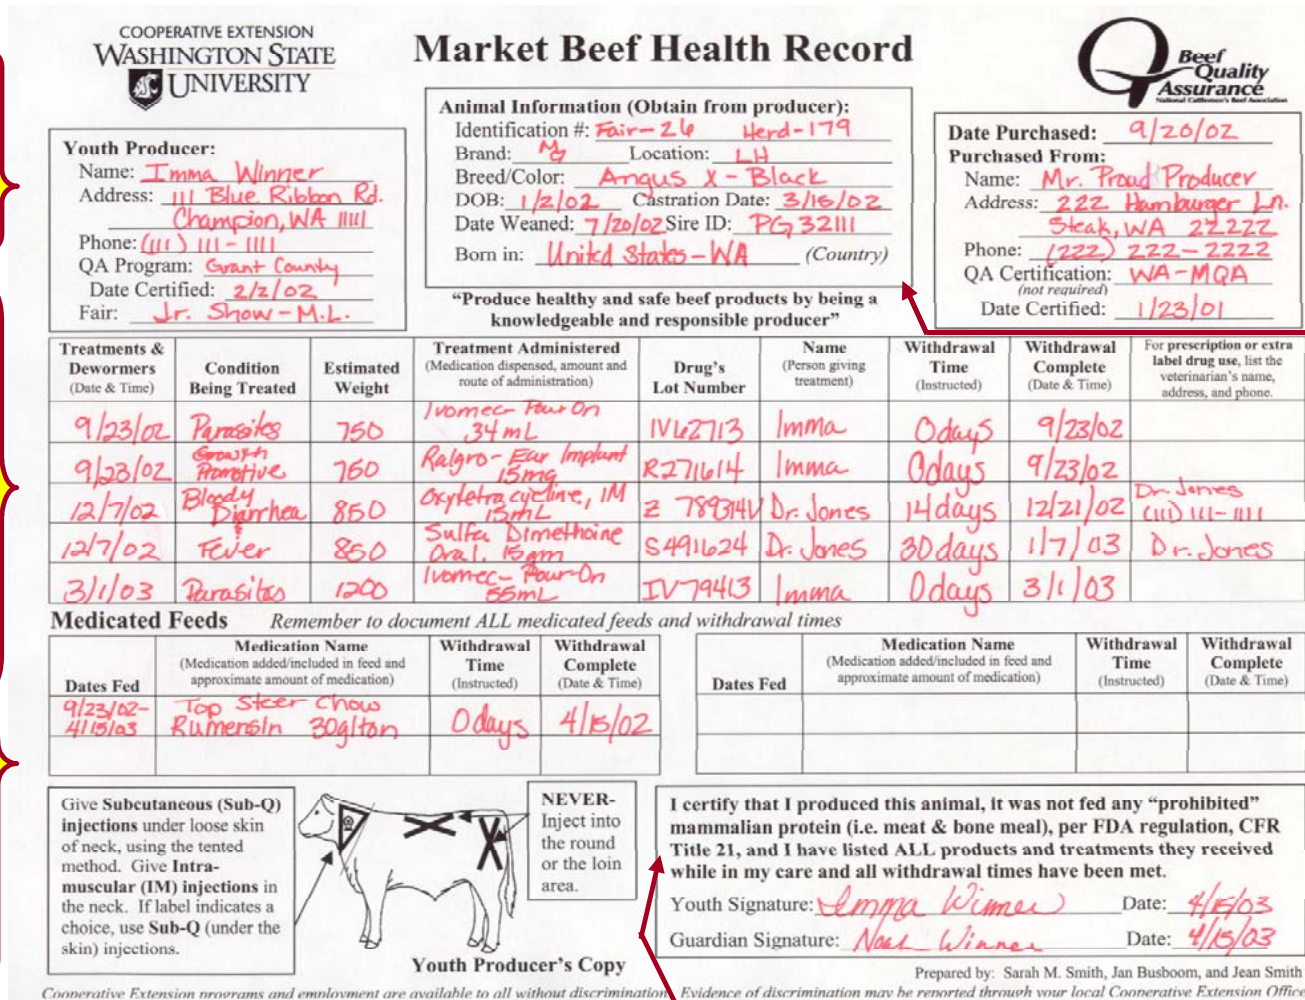 COOPERATIVE EXTENSION
WASHINGTON STATE
UNIVERSITY
Market Beef Health Record
Beef
Quality
Assurance
National Cattlemen's Beef Association
Youth Producer:
Name: Imma Winner
Address: 111 Blue Ribbon Rd.
Champion, WA 11111
Phone: (111) 111-1111
QA Program: Grant County
Date Certified: 2/2/02
Fair: Jr. Show - M.L.
Animal Information (Obtain from producer):
Identification #: Fair-26 Herd-179
Brand: Location: LH
Breed/Color: Angus X - Black
DOB: 1/2/02 Castration Date: 3/15/02
Date Weaned: 7/20/02 Sire ID: PG32111
Born in: United States - WA (Country)
"Produce healthy and safe beef products by being a
knowledgeable and responsible producer"
Date Purchased: 9/20/02
Purchased From:
Name: Mr. Proud Producer
Address: 222 Hamburger Ln.
Steak, WA 22222
Phone: (222) 222-2222
QA Certification: WA-MQA
(not required)
Date Certified: 1/23/01
Treatments & Dewormers (Date & Time) Condition Being Treated Estimated Weight Treatment Administered (Medication dispensed, amount and route of administration) Drug's Lot Number Name (Person giving treatment) Withdrawal Time (Instructed) Withdrawal Complete (Date & Time) For prescription or extra label drug use, list the veterinarian's name, address, and phone.
9/23/02 Parasites 750 Ivomec - Pour On 34 mL IV62713 Imma 0 days 9/23/02
9/23/02 Growth Promotive 750 Ralgro - Ear Implant 15mg R271614 Imma 0 days 9/23/02
12/7/02 Bloody Diarrhea & 850 Oxytetracycline, IM 15mL Z 789314V Dr. Jones 14 days 12/21/02 Dr. Jones (111) 111-1111
12/7/02 Fever 850 Sulfa Dimethoine Oral, 15gm S491624 Dr. Jones 30 days 1/7/03 Dr. Jones
3/1/03 Parasites 1200 Ivomec - Pour-On 55mL IV79413 Imma 0 days 3/1/03
Medicated Feeds Remember to document ALL medicated feeds and withdrawal times
Dates Fed Medication Name (Medication added/included in feed and approximate amount of medication) Withdrawal Time (Instructed) Withdrawal Complete (Date & Time)
9/23/02-4/15/03 Top Steer Chow Rumensin 30g/ton 0 days 4/15/02
Dates Fed Medication Name (Medication added/included in feed and approximate amount of medication) Withdrawal Time (Instructed) Withdrawal Complete (Date & Time)
Give Subcutaneous (Sub-Q)
injections under loose skin
of neck, using the tented
method. Give Intra-
muscular (IM) injections in
the neck. If label indicates a
choice, use Sub-Q (under the
skin) injections.
NEVER-
Inject into
the round
or the loin
area.
Youth Producer's Copy
I certify that I produced this animal, it was not fed any "prohibited"
mammalian protein (i.e. meat & bone meal), per FDA regulation, CFR
Title 21, and I have listed ALL products and treatments they received
while in my care and all withdrawal times have been met.
Youth Signature: Imma Winner Date: 4/15/03
Guardian Signature: Winner Date: 4/15/03
Prepared by: Sarah M. Smith, Jan Busboom, and Jean Smith
Cooperative Extension programs and employment are available to all without discrimination. Evidence of discrimination may be reported through your local Cooperative Extension Office